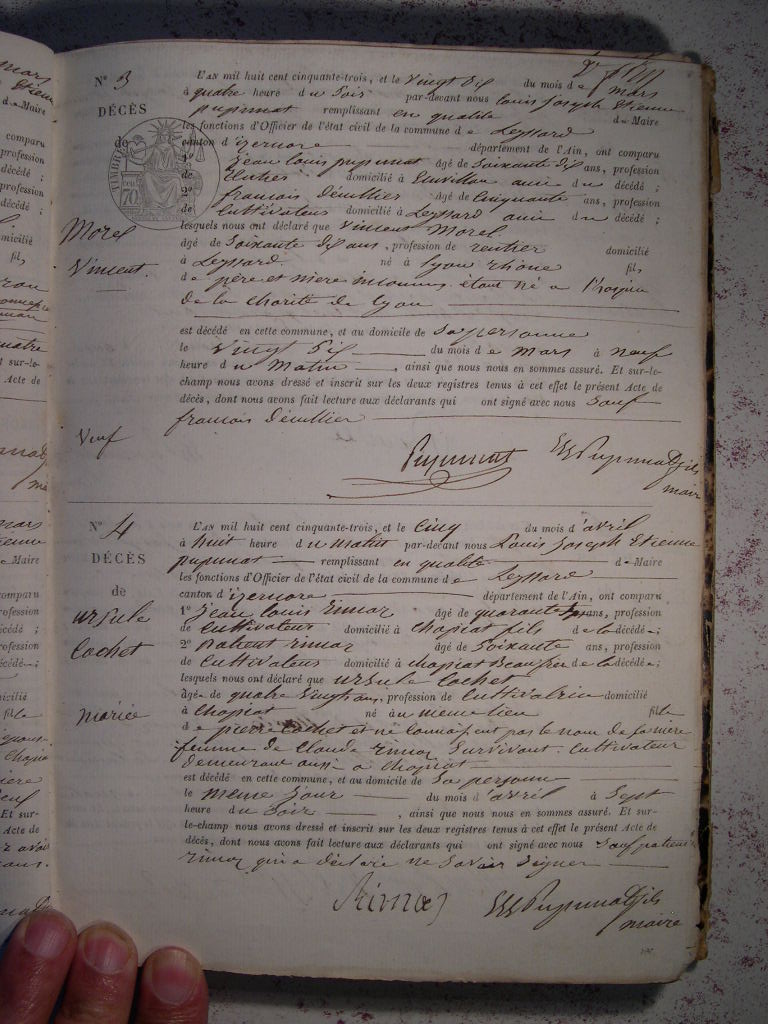 N° 3
DÉCÈS
de
Morel
Vincent.
Veuf
L'AN mil huit cent cinquante-trois, et le vingt dix du mois de mars
à quatre heure du soir par-devant nous Louis Joseph Etienne
pupunat remplissant en qualité de Maire
les fonctions d'Officier de l'état civil de la commune de Leyssard
canton d'izernore département de l'Ain, ont comparu
1° jean louis pupunat âgé de Soixante dix ans, profession
de domicilié à ami du décédé ;
2° francois âgé de Cinquante ans, profession
de Cultivateur domicilié à Leyssard ami du décédé ;
lesquels nous ont déclaré que Vincent Morel
âgé de Soixante dix ans, profession de rentier domicilié
à Leyssard né à Lyon rhône fils
de père et mere inconnus étant né a l'hospice
de la charité de Lyon
est décédé en cette commune, et au domicile de Sa personne
le vingt dix du mois de Mars à neuf
heure du Matin, ainsi que nous nous en sommes assuré. Et sur-le-
champ nous avons dressé et inscrit sur les deux registres tenus à cet effet le présent Acte de
décès, dont nous avons fait lecture aux déclarants qui ont signé avec nous Sauf
francois
Pupunat Pupunat fils
maire
N° 4
DÉCÈS
de
ursule
Cochet
mariée
L'AN mil huit cent cinquante-trois, et le cinq du mois d'avril
à huit heure du matin par-devant nous Louis Joseph Etienne
pupunat remplissant en qualité de Maire
les fonctions d'Officier de l'état civil de la commune de Leyssard
canton d'izernore département de l'Ain, ont comparu
1° jean louis rimoz âgé de quarante ans, profession
de Cultivateur domicilié à Chopiat fils de la décédée ;
2° Patient rimoz âgé de Soixante ans, profession
de Cultivateur domicilié à Chopiat Beau frere de la décédée ;
lesquels nous ont déclaré que ursule Cochet
âgée de quatre vingts ans, profession de Cultivatrice domicilié
à Chopiat né au meme lieu fille
de pierre Cochet et ne connaissent pas le nom de sa mere
femme de Claude rimoz Survivant Cultivateur
demeurant aussi a Chopiat
est décédé en cette commune, et au domicile de Sa personne
le meme jour du mois d'avril à Sept
heure du soir, ainsi que nous nous en sommes assuré. Et sur-
le-champ nous avons dressé et inscrit sur les deux registres tenus à cet effet le présent Acte de
décès, dont nous avons fait lecture aux déclarants qui ont signé avec nous Sauf patient
rimoz qui a déclaré ne Savoir Signer
Rimoz Pupunat fils
maire